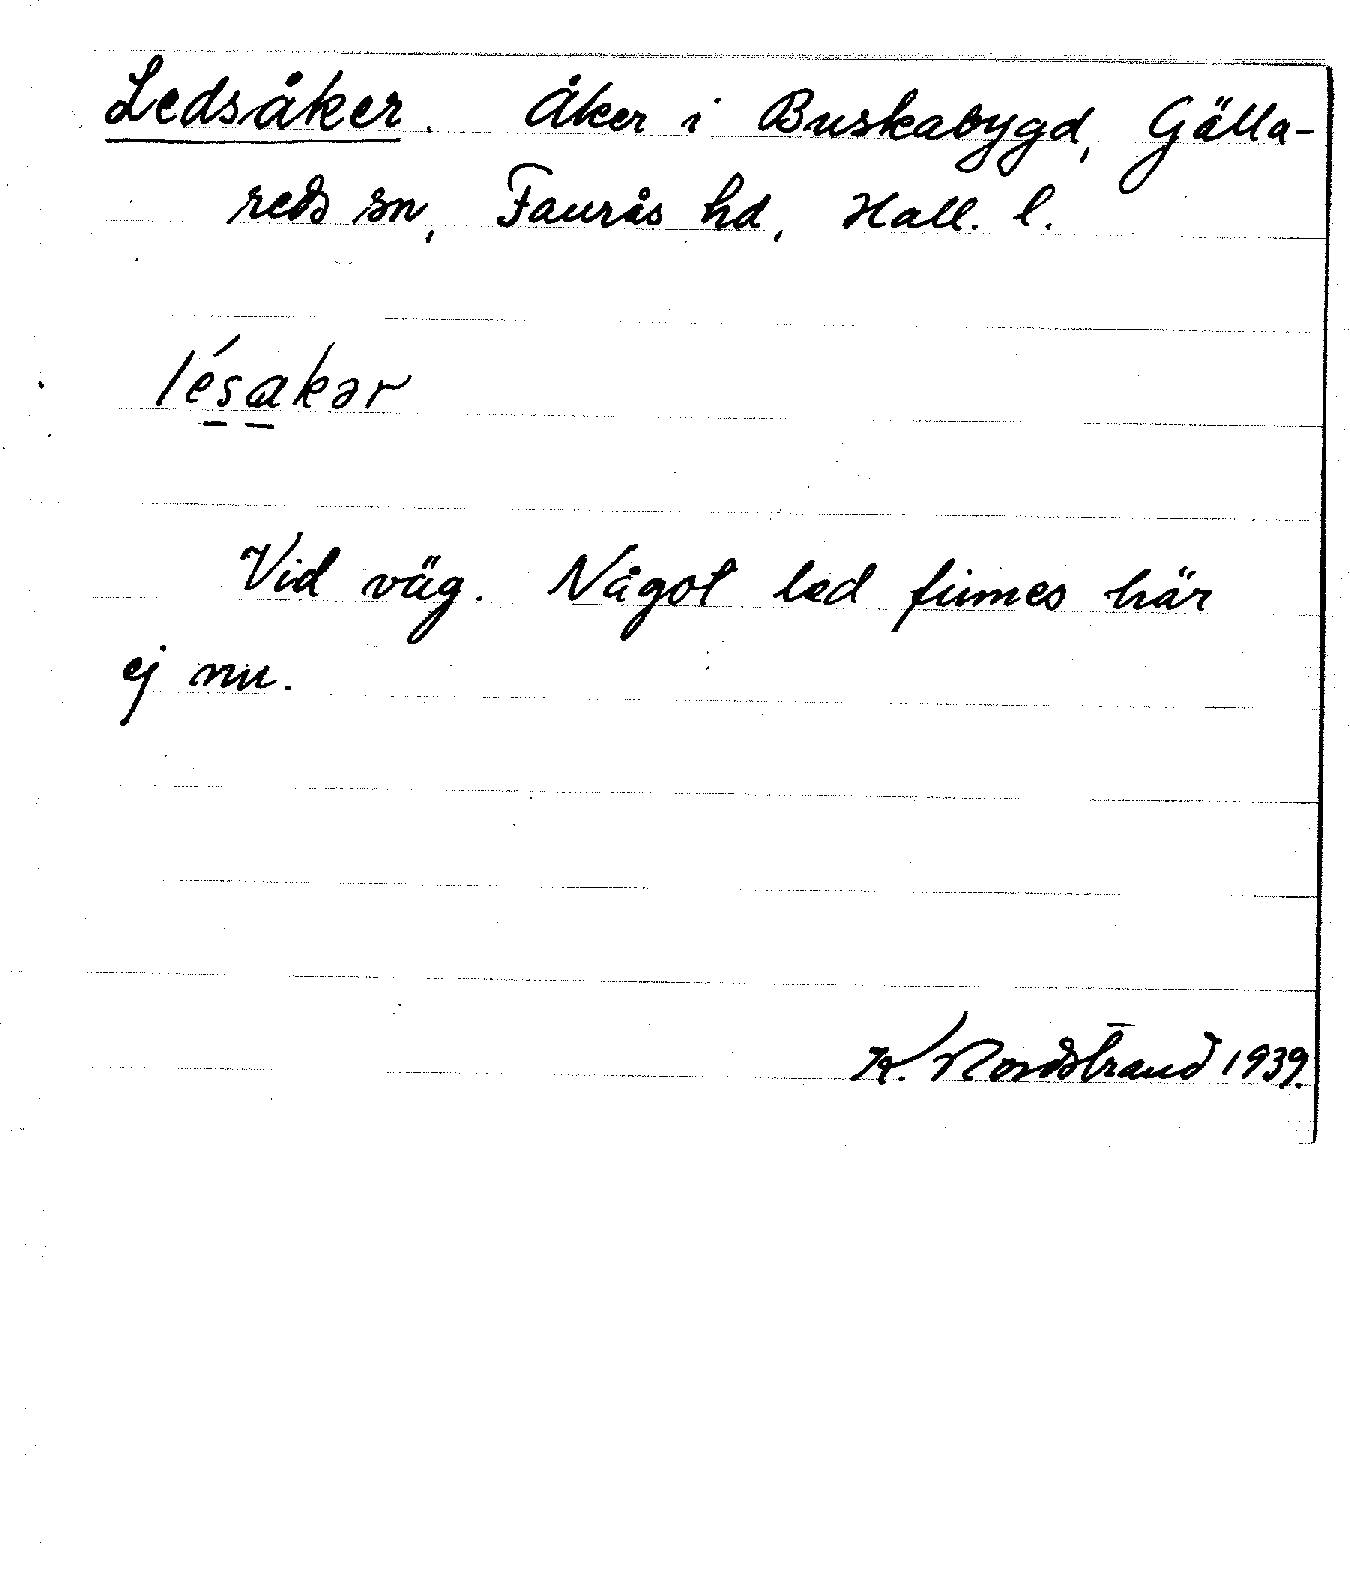 Ledsåker. Åker i Buskabygd, Gälla-
reds sn, Faurås hd, Hall. l.
lésakər
Vid väg. Något led finnes här
ej nu.
K. Nordstrand 1939.